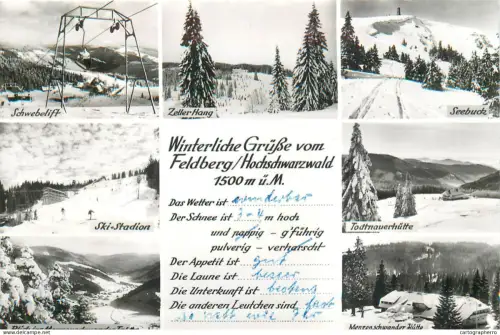 Schwebelift
Zeller Hang
Seebuck
Winterliche Grüße vom
Feldberg/Hochschwarzwald
1500 m ü. M.
Das Wetter ist wunderbar
Der Schnee ist 3-4 m hoch
und pappig - g'führig
pulverig - verharscht
Der Appetit ist gut
Die Laune ist besser
Die Unterkunft ist bestens
Die anderen Leutchen sind fast
so nett wie Ihr
Ski-Stadion
Todtnauerhütte
Menzenschwander Hütte